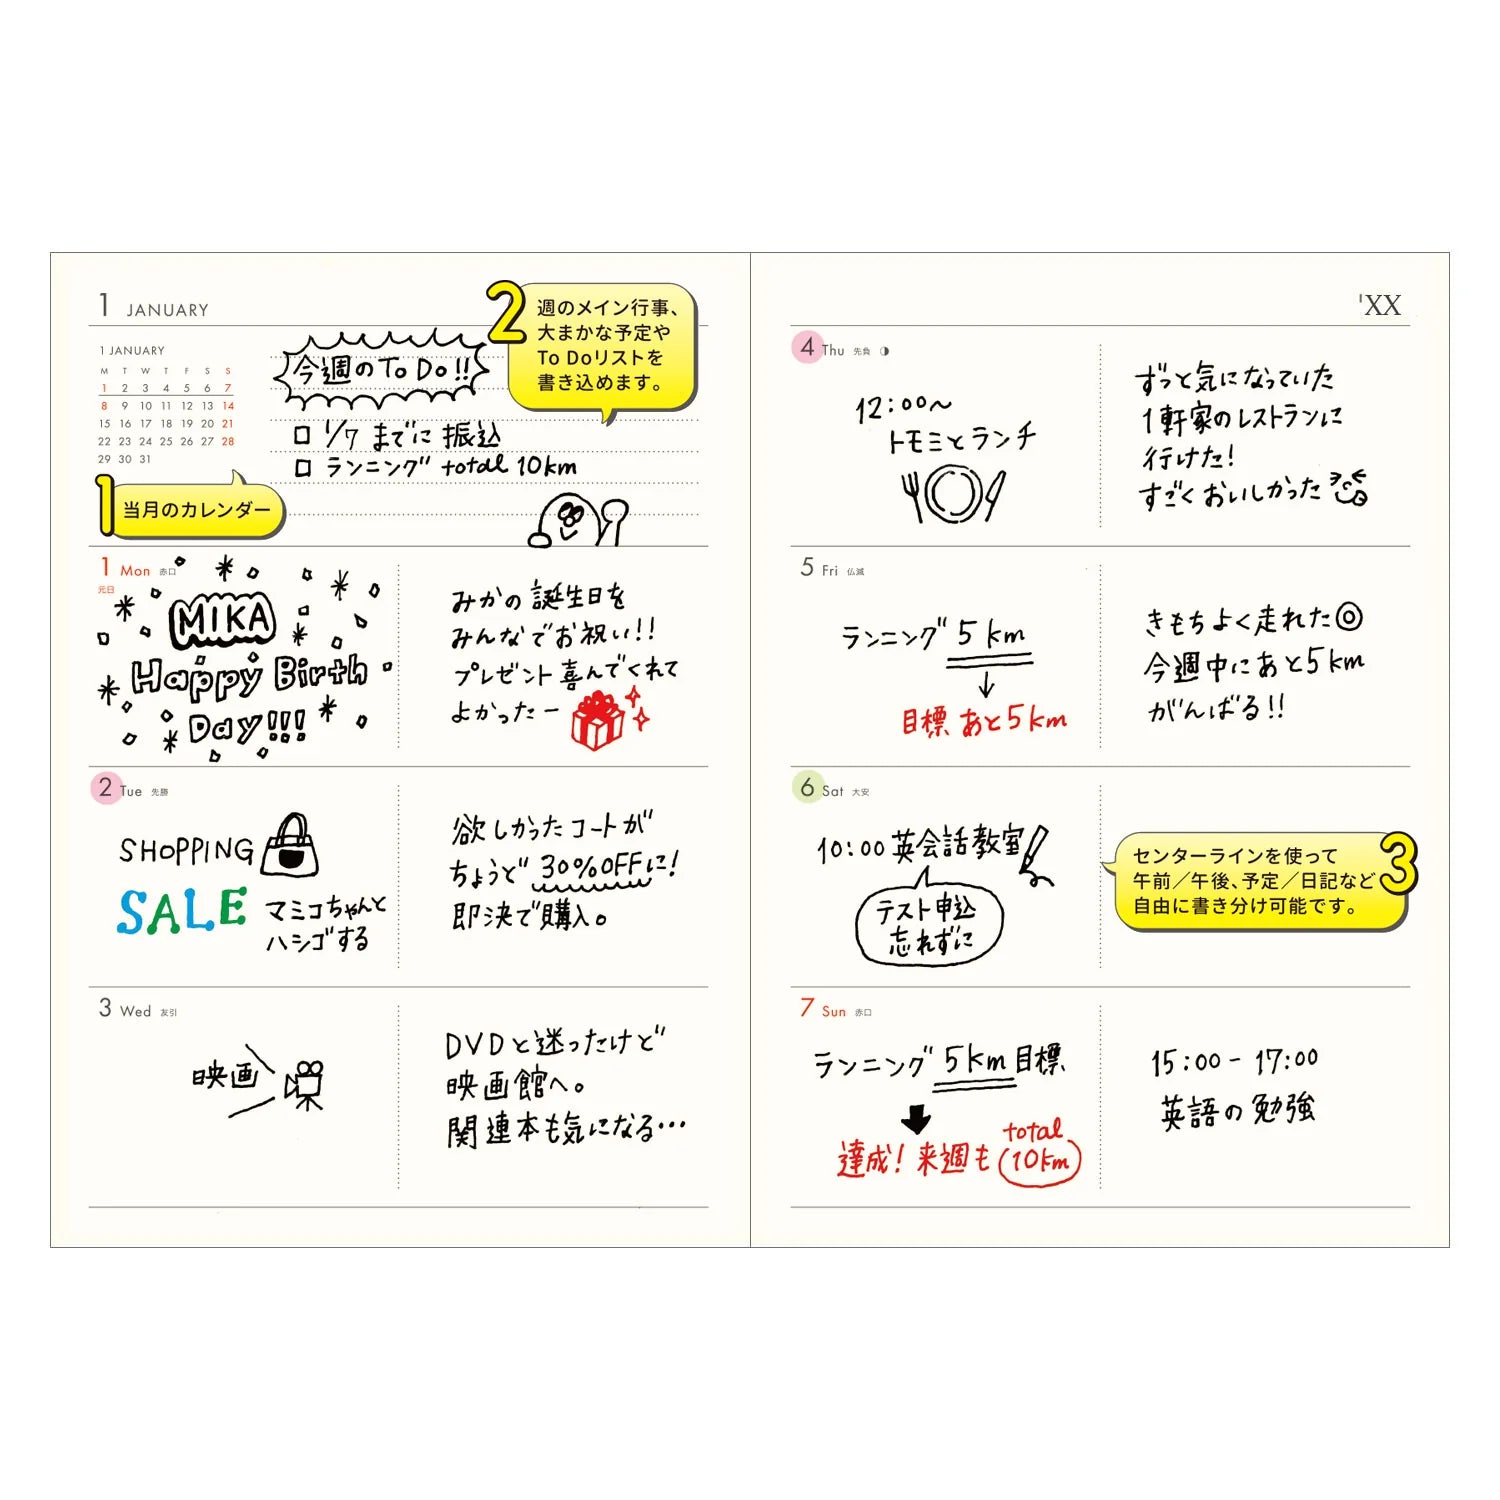 1 JANUARY
1 JANUARY
M T W T F S S
1 2 3 4 5 6 7
8 9 10 11 12 13 14
15 16 17 18 19 20 21
22 23 24 25 26 27 28
29 30 31
1 当月のカレンダー
今週のTo Do!!
□ 1/7 までに振込
□ ランニング total 10km
2
週のメイン行事、
大まかな予定や
To Doリストを
書き込めます。
1 Mon 赤口
元日
MIKA
Happy Birth
Day!!!
みかの誕生日を
みんなでお祝い!!
プレゼント喜んでくれて
よかったー
2 Tue 先勝
SHOPPING
SALE
マミコちゃんと
ハシゴする
欲しかったコートが
ちょうど30%OFFに!
即決で購入。
3 Wed 友引
映画
DVDと迷ったけど
映画館へ。
関連本も気になる…
'XX
4 Thu 先負
12:00〜
トモミとランチ
ずっと気になっていた
1軒家のレストランに
行けた!
すごくおいしかった
5 Fri 仏滅
ランニング 5km
↓
目標 あと5km
きもちよく走れた◎
今週中にあと5km
がんばる!!
6 Sat 大安
10:00 英会話教室
テスト申込
忘れずに
センターラインを使って
午前／午後、予定／日記など
自由に書き分け可能です。
3
7 Sun 赤口
ランニング 5km目標
達成! 来週も total 10km
15:00 - 17:00
英語の勉強